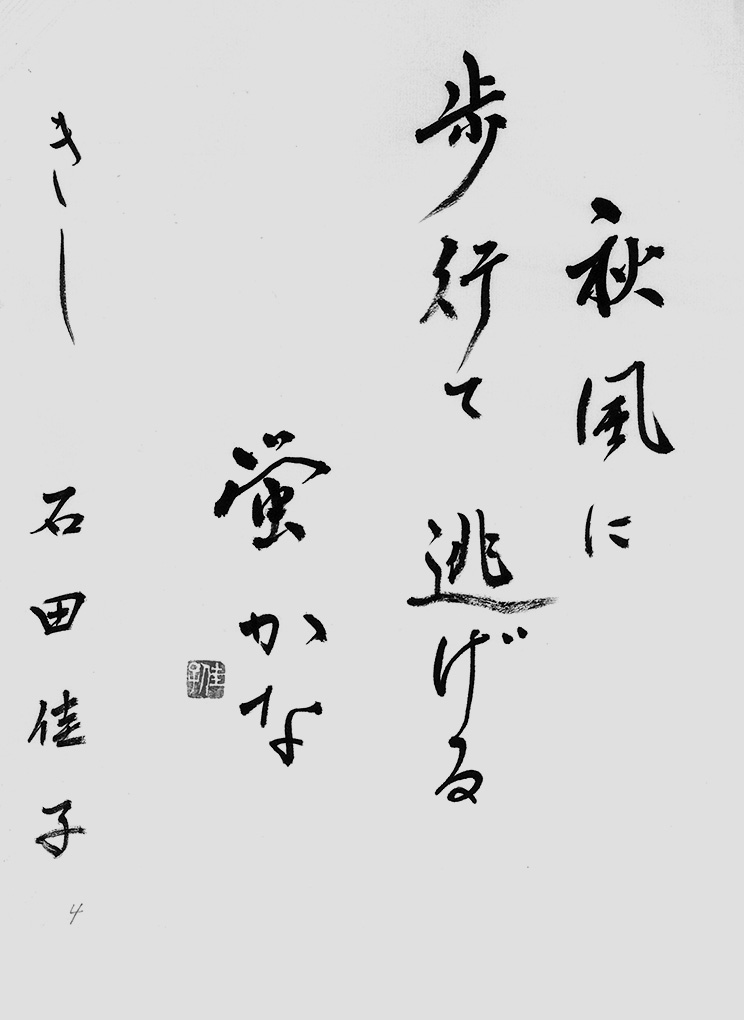 秋風に
歩行て逃げる
蛍かな
きし 石田佳子
佳子
4